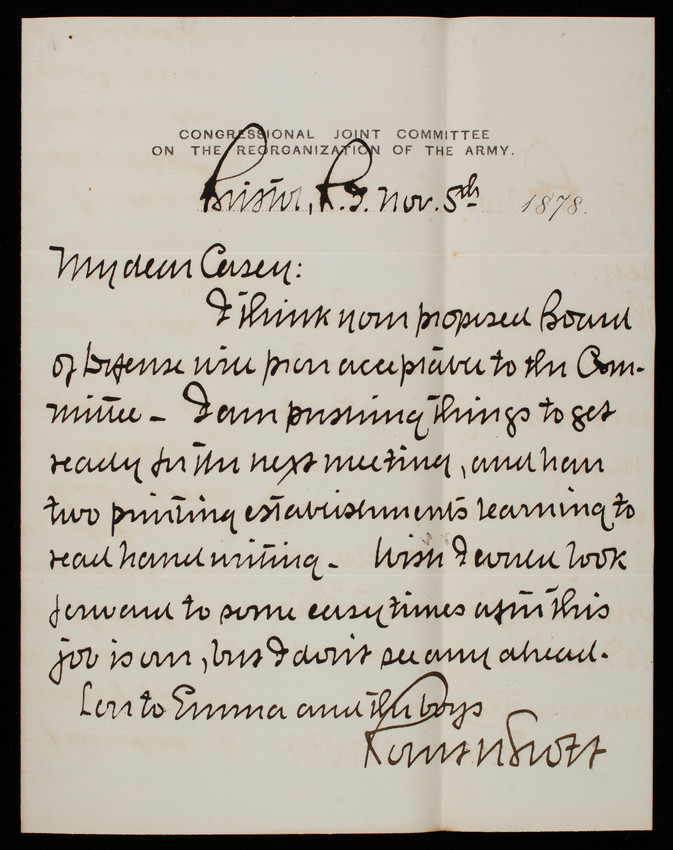 CONGRESSIONAL JOINT COMMITTEE
ON THE REORGANIZATION OF THE ARMY.
Bristol, R.I. Nov. 5th 1878.
My dear Casey:
I think your proposed Board
of Defense will prove acceptable to the Com-
mittee – I am pushing things to get
ready for the next meeting, and have
two printing establishments learning to
read handwriting – Wish I could look
forward to some easy times after this
job is over, but I don't see any ahead.
Love to Emma and the boys
Robert N Scott